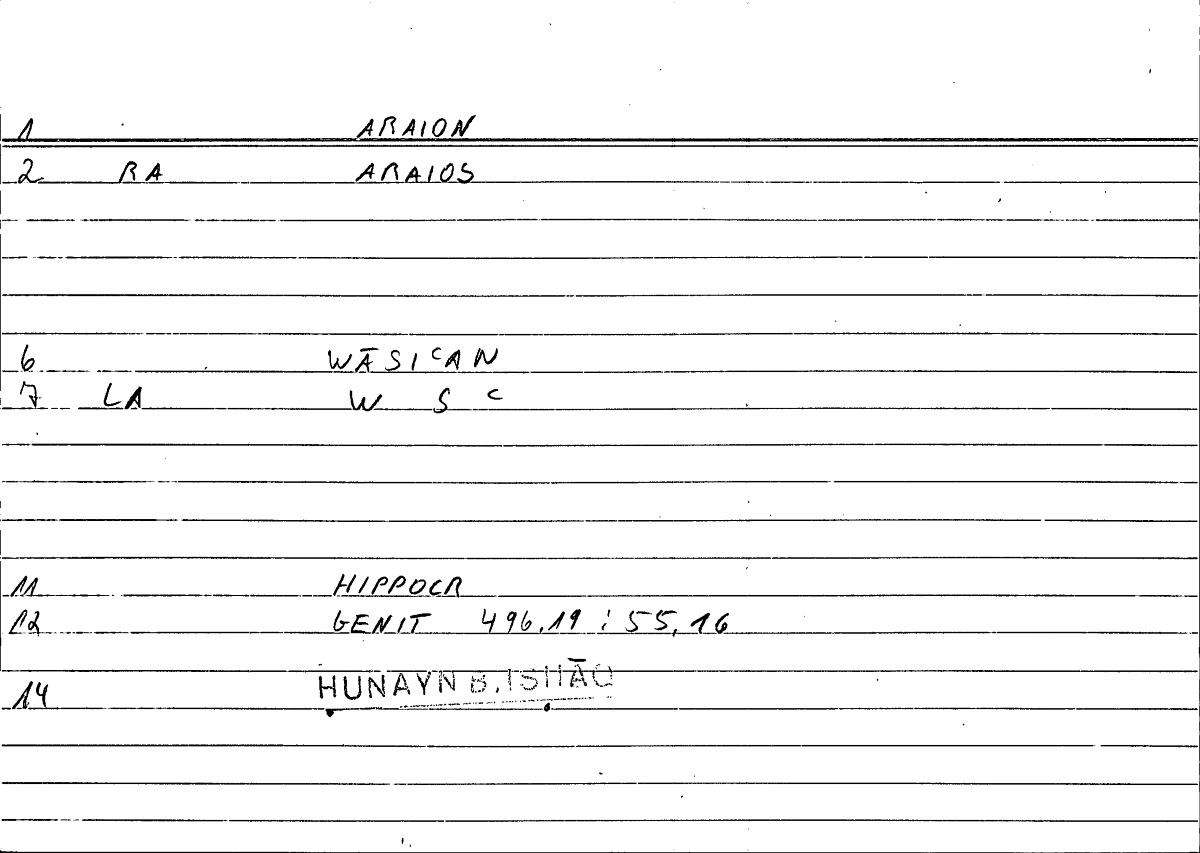 1 ARAION
2 RA ARAIOS
6 WĀSIᶜAN
7 LA W S ᶜ
11 HIPPOCR
12 GENIT 496.19 : 55,16
14 ḤUNAYN B. ISḤĀQ